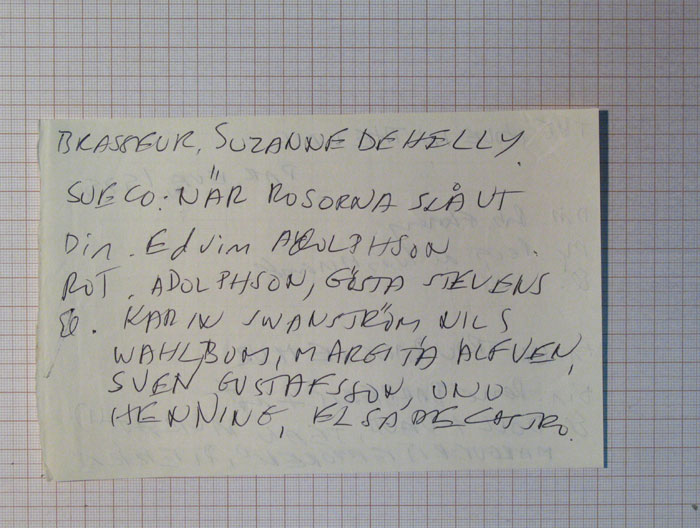 BRASSEUR, SUZANNE DEHELLY.
SUECO: NÄR ROSORNA SLÅ UT
Din. Edvim ADOLPHSON
ROT. ADOLPHSON, GÖSTA STEVENS
KARIN SWANSTRÖM, NILS
WAHLBOM, MARGITA ALFVEN,
SVEN GUSTAFSSON, UNO
HENNING, ELSA DE CASTRO.